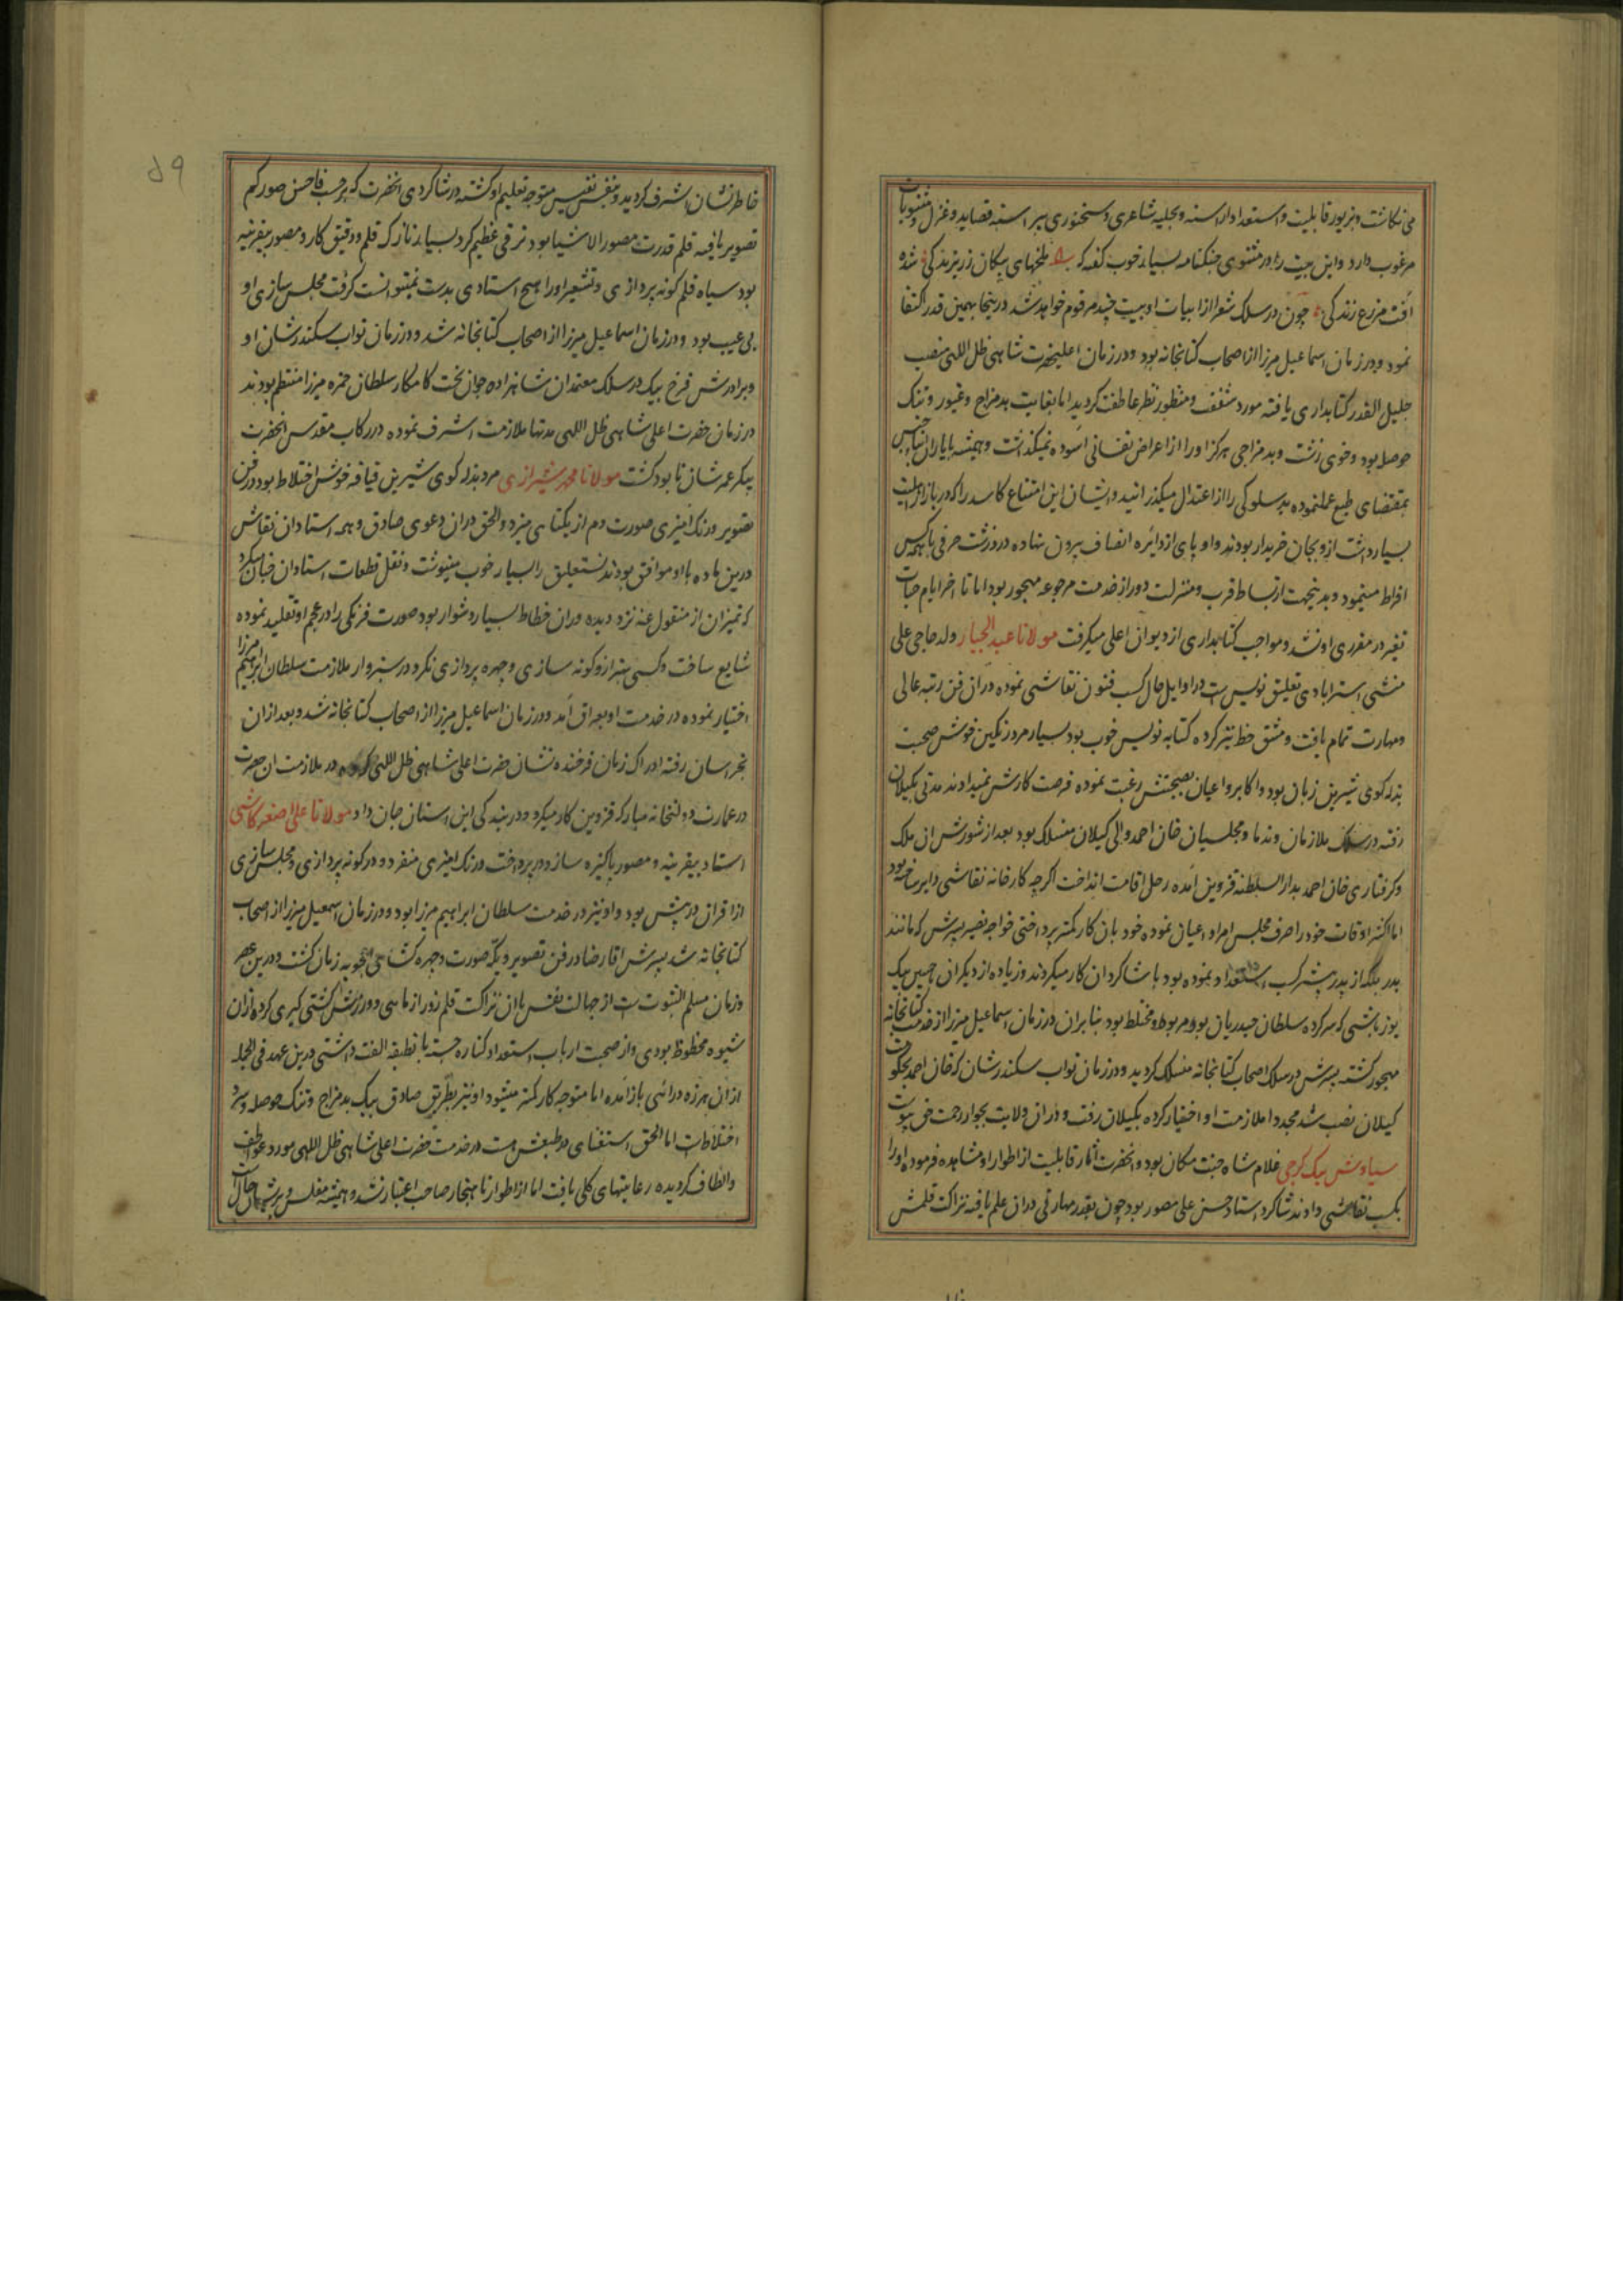 می نگاشت و بزیور قابلیت و استعداد آراسته و بحلیه شاعری و سخنوری پیراسته قصاید و غزل و مثنویات
مرغوب دارد و این بیت را در مثنوی جنکنامه بسیار خوب گفته که ملخهای پیکان زرین زندکی شده
آفت مزرع زندکی چون در سلک شعرا از ابیات او بیت چند مرقوم خواهد شد درینجا بهمین قدر اکتفا
نمود و در زمان اسماعیل میرزا از اصحاب کتابخانه بود و در زمان اعلیحضرت شاهی ظل اللهی منصب
جلیل القدر کتابداری یافته مورد شفقت و منظور نظر عاطفت کردید اما بغایت بدمزاج و غیور و تنک
حوصله بود و خوی زشت و بدمزاجی هرکز اورا از اعراض نفسانی آسوده نمیکذاشت و همیشه با یاران و ابنای جنس
بمقتضای طبع عمل نموده بدسلوکی را از اعتدال میکذرانید و ایشان این امتناع کاسد را که در بازار اهلیت
بسیار داشت ازو بجان خریدار بودند و او پای از دائره انصاف بیرون نهاده در درشت حرفی با همه کس
افراط مینمود و بدینجهت از بساط قرب و منزلت دور از خدمت مرجوعه مهجور بود اما تا آخر ایام حیات
تغیر در مقرری او نشد و مواجب کتابداری از دیوان اعلی میکرفت مولانا عبدالجبار ولد حاجی علی
منشی استرابادی تعلیق نویس است در اوایل حال کسب فنون نقاشی نموده در آن فن رتبه عالی
و مهارت تمام یافت و مشق خط نیز کرده کتابه نویس خوب بود بسیار مرد رنکین خوش صحبت
بذله کوی شیرین زبان بود و اکابر و اعیان بصحبتش رغبت نموده فرصت کارش نمیدادند مدتی بکیلان
رفته در سلک ملازمان و ندما و مجلسیان خان احمد والی کیلان منسلک بود بعد از شورش آن ملک
و کرفتاری خان احمد بدارالسلطنه قزوین آمده رحل اقامت انداخت اکرچه کارخانه نقاشی دایر ساخته بود
اما اکثر اوقات خود را صرف مجلس امرا و اعیان نموده خود بآن کار کمتر پرداختی خواجه نصیر پسرش که مانند
پدر بلکه از پدر بیشتر کسب استعداد نموده بود با شاکردان کار میکردند و زیاده از دیکران حسین بیک
یوزباشی که سرکرده سلطان حیدریان بود مربوط و مختلط بود بنابر آن در زمان اسماعیل میرزا از خدمت کتابخانه
مهجور کشته پسرش در سلک اصحاب کتابخانه منسلک کردید و در زمان نواب سکندرشان که خان احمد بحکومت
کیلان نصب شد مجددا ملازمت او اختیار کرده بکیلان رفت و در آن ولایت بجوار رحمت حق پیوست
سیاوش بیک کرجی غلام شاه جنت مکان بود و آنحضرت آثار قابلیت از اطوار او مشاهده فرموده او را
بکسب نقاشی دادند شاکرد استاد حسن علی مصور بود چون بقدر مهارتی در آن علم یافته نزاکت قلمش
۵۹
خاطر نشان اشرف کردید و بنفس نفیس متوجه تعلیم او کشته در شاکردی آنحضرت که بر حسب فاحسن صورکم
تصویر یافته قلم قدرت مصور الاشیا بود ترقی عظیم کرد بسیار نازک قلم و دقیق کار و مصور بیقرینه
بود سیاه قلم کونه پردازی و تشعیر او را هیچ استادی بدست نمیتوانست کرفت مجلس سازی او
بی عیب بود و در زمان اسماعیل میرزا از اصحاب کتابخانه شد و در زمان نواب سکندرشان او
و برادرش فرخ بیک در سلک معتمدان شاهزاده جوان بخت کامکار سلطان حمزه میرزا منتظم بودند
در زمان حضرت اعلی شاهی ظل اللهی مدتها ملازمت اشرف نموده در رکاب مقدس آنحضرت
پیکر عمرشان نابود کشت مولانا محمد شیرازی مرد بذله کوی شیرین قیافه خوش اختلاط بود در فن
تصویر و رنک آمیزی صورت دم از یکتایی میزد والحق در آن دعوی صادق و همه استادان نقاش
درین ماده با او موافق بودند نستعلیق را بسیار خوب مینوشت و نقل قطعات استادان چنان میکرد
که تمیز آن از منقول عنه نزد دیده وران خطاط بسیار دشوار بود صورت فرنکی را در عجم او تقلید نموده
شایع ساخت و کسی بهتر ازو کونه سازی و چهره پردازی نکرد در سبزوار ملازمت سلطان ابراهیم میرزا
اختیار نموده در خدمت او بعراق آمد و در زمان اسماعیل میرزا از اصحاب کتابخانه شد و بعد از آن
بخراسان رفته ادراک زمان فرخنده نشان حضرت اعلی شاهی ظل اللهی کرده در ملازمت آن حضرت
در عمارت دولتخانه مبارکه قزوین کار میکرد و در بندکی این استان جان داد مولانا علی اصغر کاشی
استاد بیقرینه و مصور پاکیزه ساز و در پرداخت و رنک آمیزی منفرد و در کونه پردازی و مجلس سازی
از اقران در پیش بود و او نیز در خدمت سلطان ابراهیم میرزا بود و در زمان اسمعیل میرزا از اصحاب
کتابخانه شد پسرش آقا رضا در فن تصویر و یکه صورت و چهره کشائی اعجوبه زمان کشت و درین عصر
و زمان مسلم الثبوت است از جهالت نفس با آن نزاکت قلم زور آزمایی و ورزش کشتی کیری کرده از آن
شیوه محظوظ بودی و از صحبت ارباب استعداد کناره جسته با آن طبقه الفت داشتی درین عهد فی الجمله
از آن هرزه درائی باز آمده اما متوجه کار کمتر میشود او نیز بطریق صادق بیک بدمزاج و تنک حوصله و سرد
اختلاط است اما الحق استغنای در طبعش هست در خدمت حضرت اعلی شاهی ظل اللهی مورد عواطف
و الطاف کردیده رعایتهای کلی یافت اما از اطوار ناهنجار صاحب اعتبار نشد و همیشه مفلس و پریشان حال است